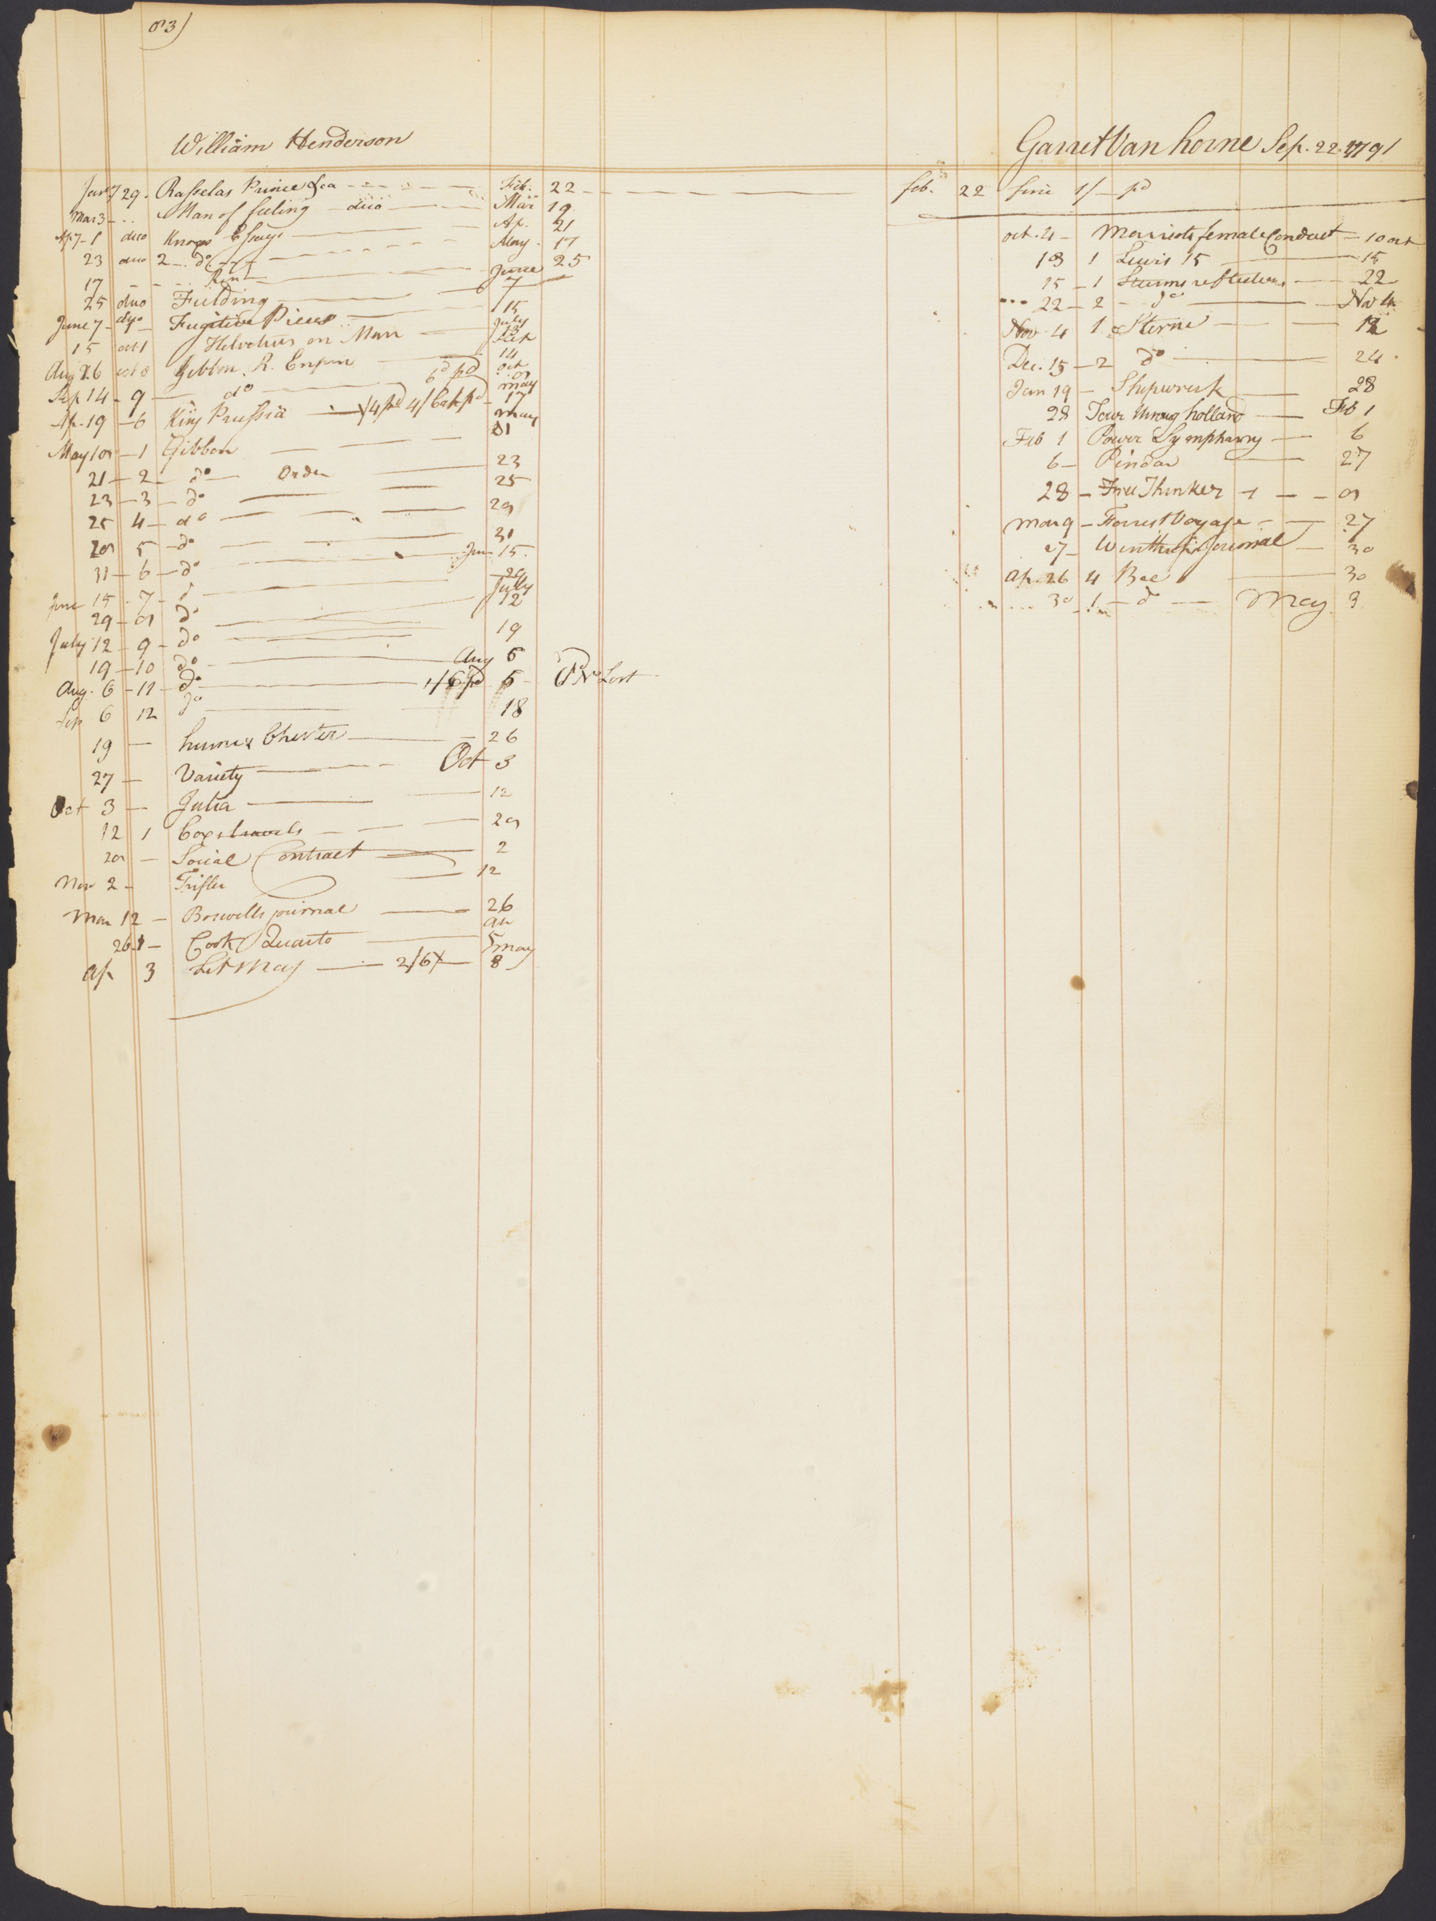 83)
William Henderson
Jany 29. Rasselas Prince &ca Feb. 22
Mar 3 Man of feeling duo Mar 19
Ap 7 1 duo Knoxs Essays Ap. 21
23 duo 2 do May 17
17 June 25
25 duo Fielding 7
June 7 dyo Fugitive Pieces 15
15 oct 1 Helvetius on Man July 13
Aug 26 oct 8 Gibbon R. Empr Sep 14
Sep 14 9 do 6d pd oct
Ap. 19 6 King Prussia 4/6 pd May 17
May 18 1 Gibbon May 21
21 2 do Order 23
23 3 do 25
25 4 do 28
28 5 do 31
31 6 do Jun 15
June 15 7 do 29
29 8 do July 12
July 12 9 do 19
19 10 do Aug 6
Aug. 6 11 do 1/6 pd 6 No Lost
Sep 6 12 do 18
19 26
27 Variety Oct 3
Oct 3 Julia 12
12 1 Coxs travels 28
28 Social Contract 2
Nov 2 Trifler 12
Mar 12 Boswells journal 26
26 1 Cook Quarto ap 5
ap 3 Lit Mag 2/6 may 8
Garret Van horne Sep. 22. 1791
feb. 22 fine 1/ pd
oct. 4 Marriots female Conduct 10 oct
13 1 Lewis 15 15
15 1 Sturms reflections 22
22 2 do Nov 4
Nov 4 1 Sterne 12
Dec. 15 2 do 24
Jan 19 Shipwreck 28
28 Tour throug holland Feb 1
Feb 1 Power Symphany 6
6 Pindar 27
28 Free Thinker 8
Mar 9 Forrest Voyage 27
27 Winthrops Journal 30
ap. 26 4 Bee 30
30 1 do May 3